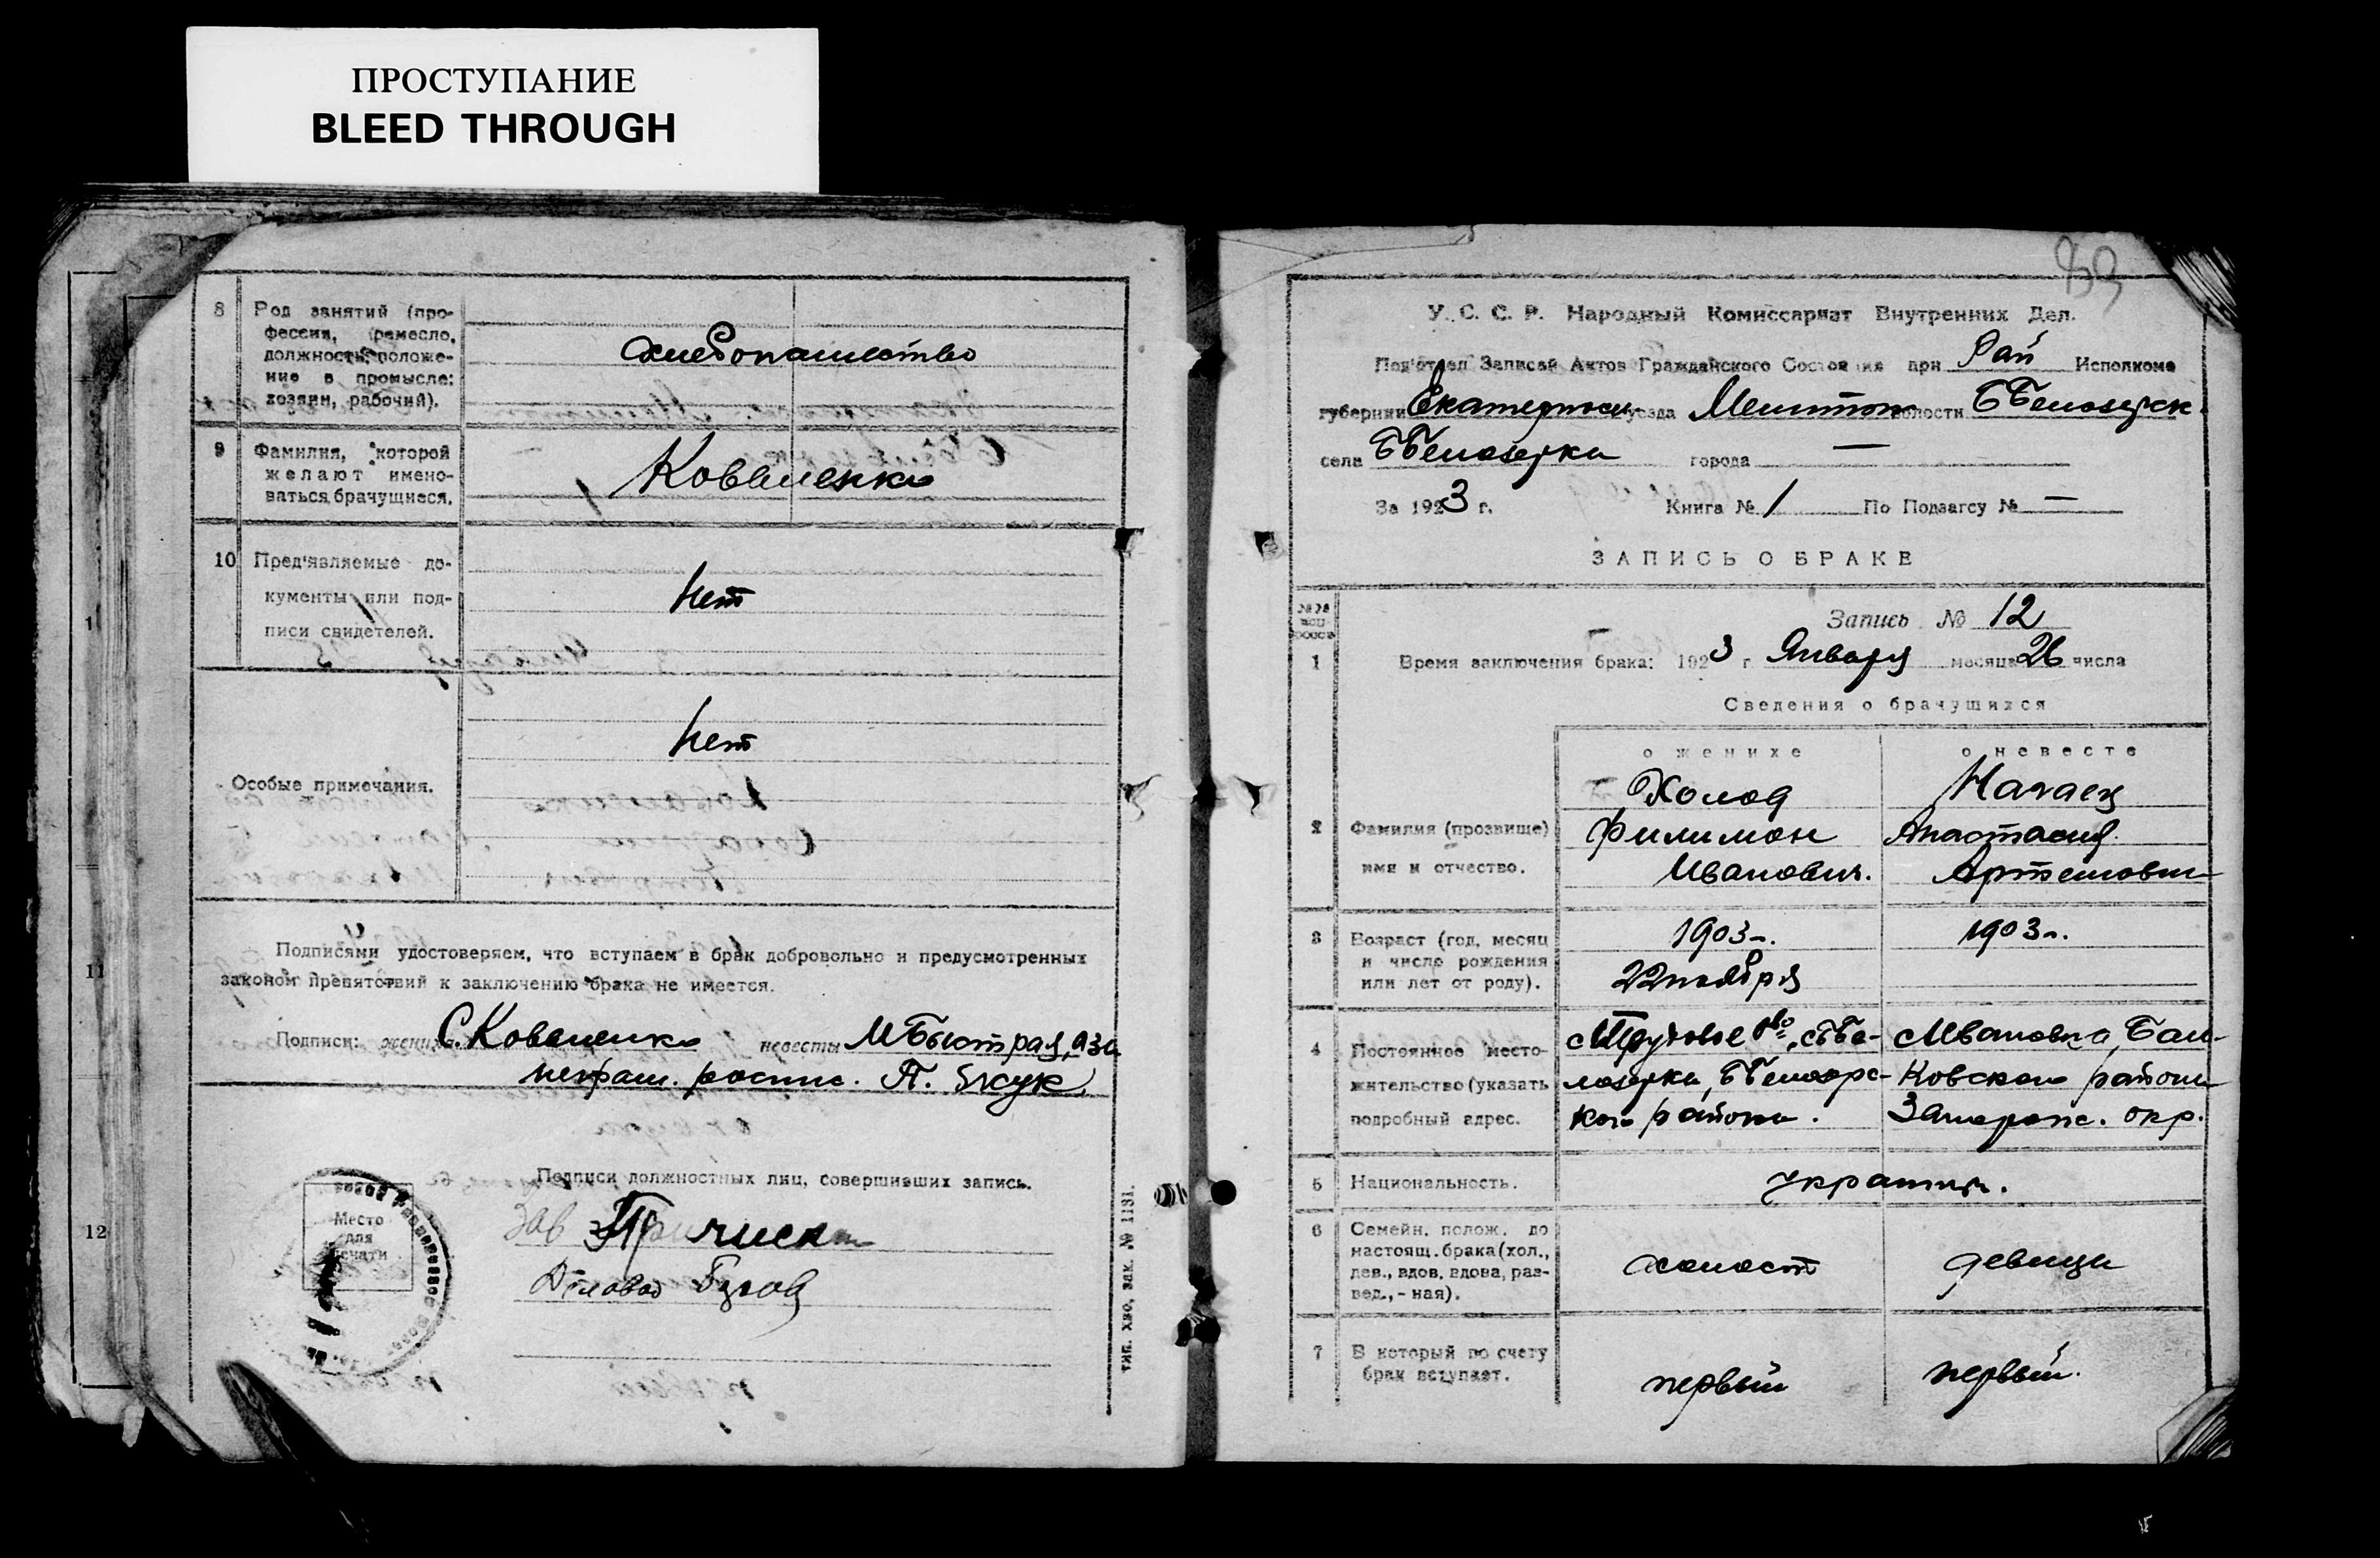 ПРОСТУПАНИЕ
BLEED THROUGH
8 Род занятий (про-
фессия, ремесло,
должность, положе-
ние в промысле:
хозяин, рабочий).
хлебопашество
9 Фамилия, которой
желают имено-
ваться брачущиеся.
Коваленко
10 Пред'являемые до-
кументы или под-
писи свидетелей.
Нет
Особые примечания.
Нет
1
11
12
Подписями удостоверяем, что вступаем в брак добровольно и предусмотренных
законом препятствий к заключению брака не имеется.
Подписи: жениха С. Коваленко невесты М Быстрая, а за
неграм. роспис. П.
Подписи должностных лиц, совершивших запись.
Зав
Место
для
печати
Діловод
тип. хво, зак. № 1131.
83
У. С. С. Р. Народный Комиссариат Внутренних Дел.
Под'отдел Записей Актов Гражданского Состояния при Рай Исполкоме
губернии Екатеринос. уезда Мелитоп волости ББелозерск.
села ББелозерки города —
За 1923 г. Книга № 1 По Подзагсу № —
ЗАПИСЬ О БРАКЕ
№№ воп-
росов
Запись № 12
1 Время заключения брака: 1923 г Января месяца 26 числа
Сведения о брачущихся
о женихе о невесте
2 Фамилия (прозвище)
имя и отчество.
Холод
Филимон
Иванович.
Анастасия
Артемовна
3 Возраст (год, месяц
и число рождения
или лет от роду).
1903 г.
22 ноября
1903 г.
4 Постоянное место-
жительство (указать
подробный адрес.
с ББе-
лозерки, ББелозерс-
кого района.
с Ивановка, Бал-
ковского района
Запорожс. окр.
5 Национальность.
украинц.
6 Семейн. полож. до
настоящ. брака (хол.,
дев., вдов, вдова, раз-
вед.,-ная).
холост
девица
7 В который по счету
брак вступает.
первый
первый.